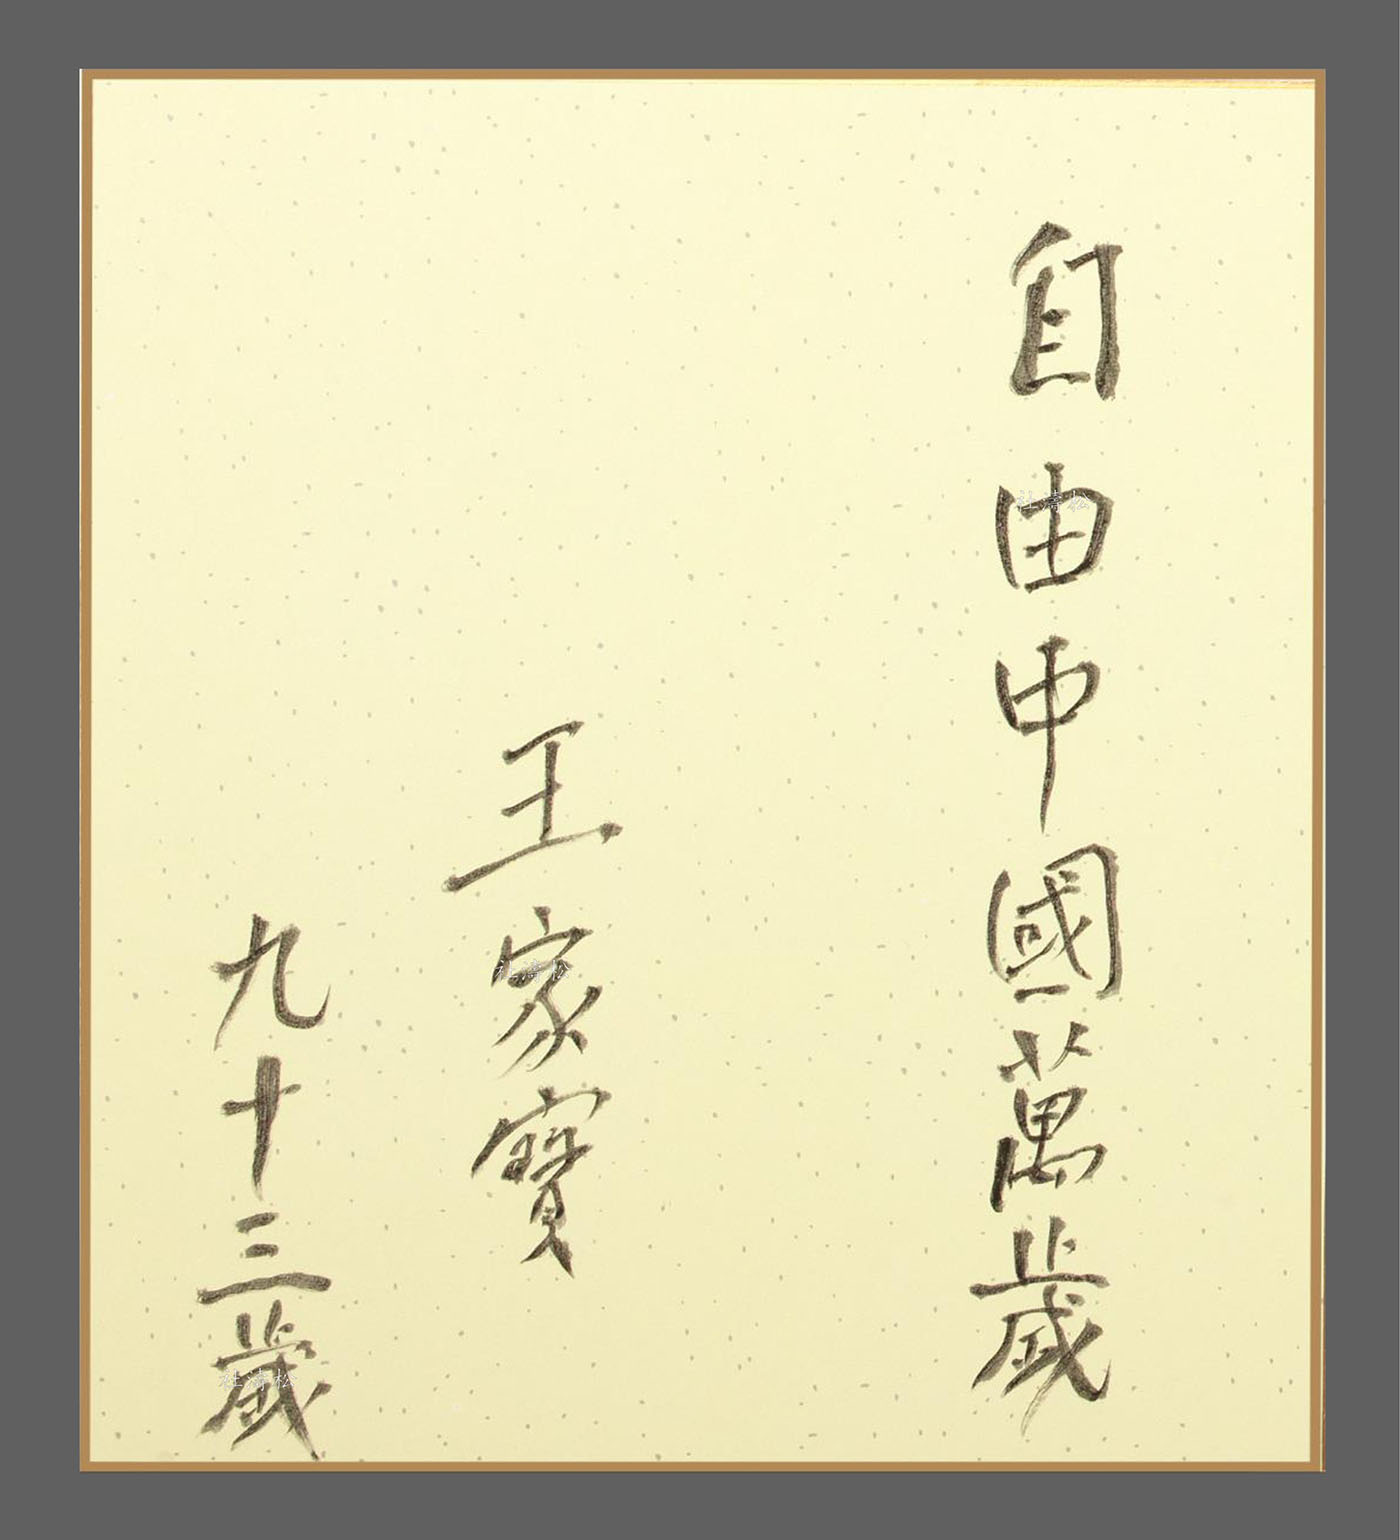 自由中國萬歲
王家寶
九十三歲